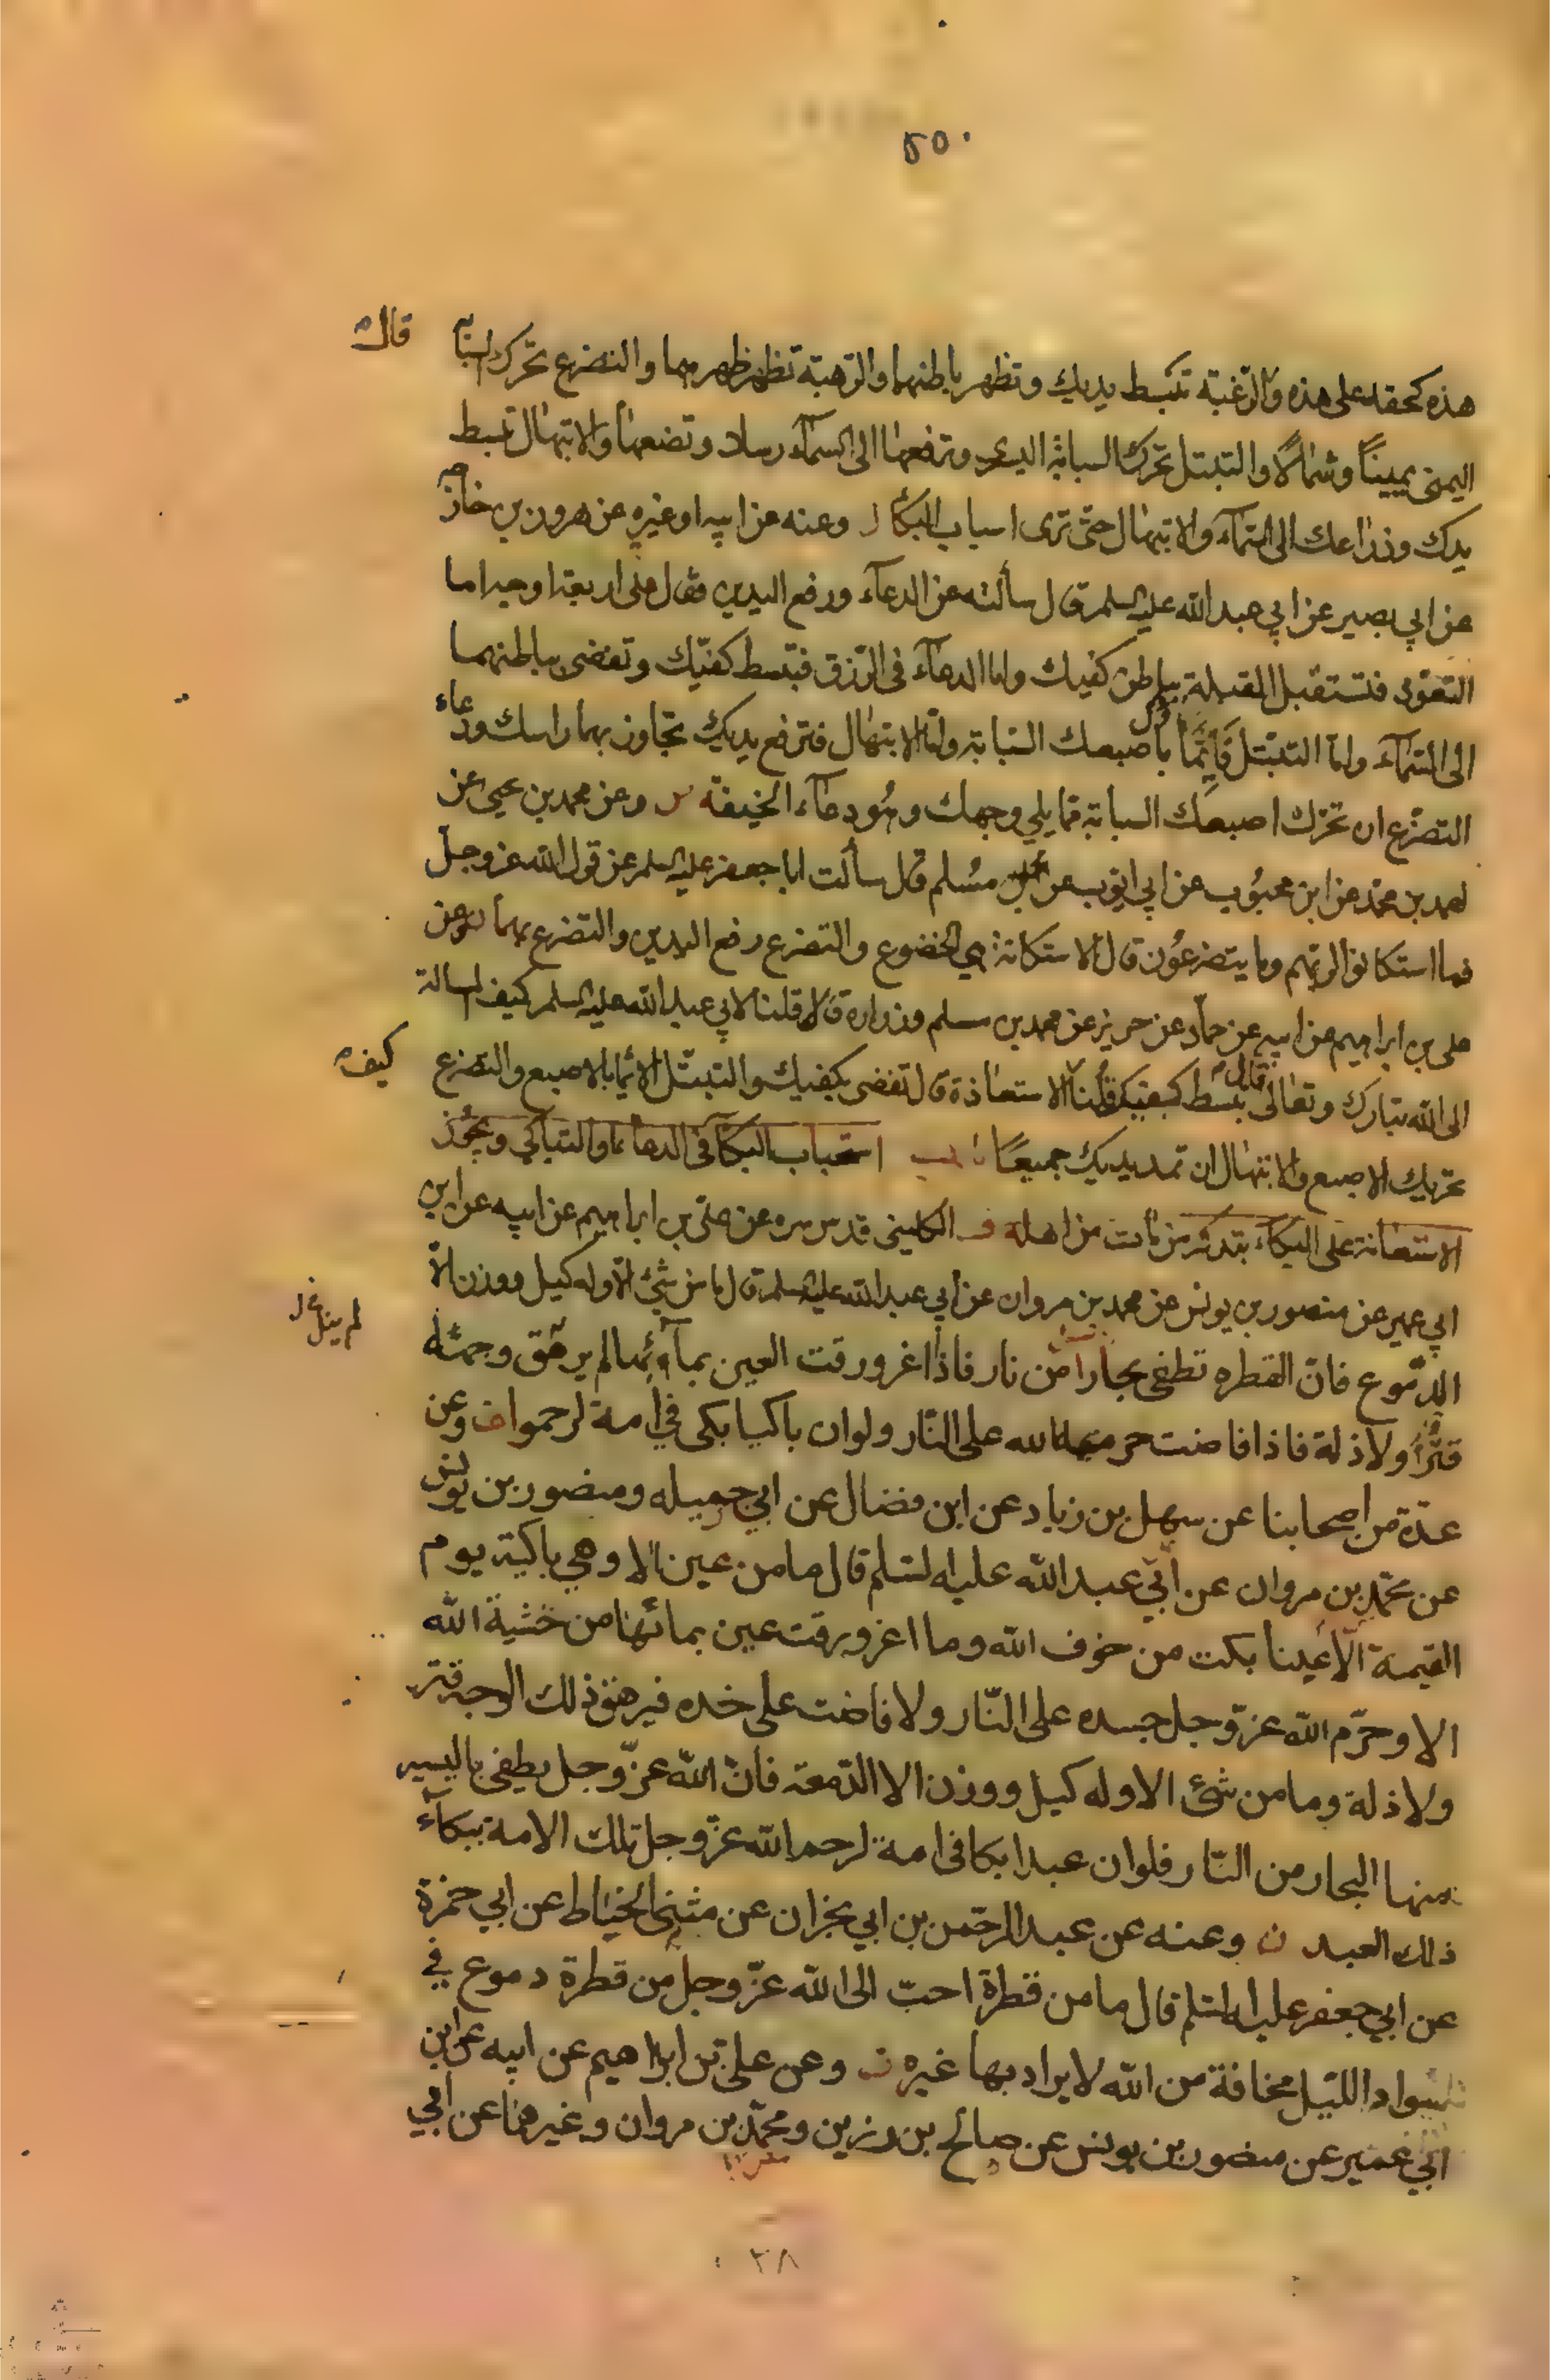 ٤٥٠
هذه كحقه على هذه والرّغبة تبسط يديك وتظهر باطنهما والرّهبة تظهر ظهرهما والتضرع تحرك السبّابة
قال
اليمنى يميناً وشمالاً والتبتل تحرك السبابة اليسرى وترفعها الى السمآء رسلا وتضعها والابتهال تبسط
يدك وذراعك الى السّمآء والابتهال حتى ترى اسباب البكآء وعنه عن ابيه او غيره عن هرون بن خارجة
عن ابي بصير عن ابي عبد الله عليه السلم قال سألته عن الدعآء ورفع اليدين فقال على اربعة اوجه اما
التعوّذ فتستقبل القبلة بباطن كفيك واما الدعآء فى الرّزق فتبسط كفّيك وتفضى بباطنهما
الى السّمآء وامّا التبتّل فايمآء باصبعك السّبابة وامّا الابتهال فترفع يديك تجاوز بهما راسك ودعاء
التضرّع ان تحرّك اصبعك السبابة مما يلي وجهك وهو دعآء الخيفة وعن محمد بن يحيى عن
احمد بن محمّد عن ابن محبوب عن ابي ايوب عن محمد بن مسلم قال سألت ابا جعفر عليه السلم عن قول الله عز وجل
فما استكانوا لربّهم وما يتضرعون قال الاستكانة هي الخضوع والتضرع رفع اليدين والتضرع بهما وعن
على بن ابراهيم عن ابيه عن حمّاد عن حريز عن محمد بن مسلم وزرارة قالا قلنا لابي عبد الله عليه السلم كيف المسالة
الى الله تبارك وتعالى قال تبسط كفيك قلنا الاستعاذة قال تفضى بكفيك والتبتّل الايما بالاصبع والتضرع
كيف
تحريك الاصبع والابتهال ان تمد يديك جميعًا باب استحباب البكآ فى الدعآء والتباكي ويجوز
الاستعانة على البكاء بتذكر من مات من اهله الكلينى قدس سره عن علىّ بن ابراهيم عن ابيه عن ابن
ابي عمير عن منصور بن يونس عن محمد بن مروان عن ابي عبد الله عليه السلم قال ما من شئ الّا وله كيل ووزن الّا
الدّموع فانّ القطره تطفى بحاراً من نار فاذا اغرورقت العين بمآئها لم يرهق وجهه
قترٌ ولا ذلة فاذا فاضت حرمه الله على النّار ولو ان باكيا بكى في امة لرحموا وعن
عدّة من اصحابنا عن سهل بن زياد عن ابن فضال عن ابي جميله ومنصور بن يونس
عن محمّد بن مروان عن أبي عبد الله عليه السّلم قال ما من عين الا وهي باكية يوم
القيمة الّا عينا بكت من خوف الله وما اغرورقت عين بمائها من خشية الله
الا وحرّم الله عزّ وجل جسده على النّار ولا فاضت على خده فيرهق ذلك الوجه قتر
ولا ذلة وما من شئ الا وله كيل ووزن الا الدّمعة فان الله عزّ وجل يطفى باليسير
منها البحار من النّار فلو ان عبدا بكا فى امة لرحم الله عزّ وجل تلك الامة ببكآء
ذلك العبد ن وعنه عن عبد الرحمن بن ابي نجران عن مثنى الحناط عن ابي حمزة
عن ابي جعفر عليه السلم قال ما من قطرة احبّ الى الله عزّ وجل من قطرة دموع في
سواد الليل مخافة من الله لا يراد بها غيره وعن على بن ابراهيم عن ابيه عن ابن
ابي عمير عن منصور بن يونس عن صالح بن رزين ومحمّد بن مروان وغيرهما عن ابي
٣٨